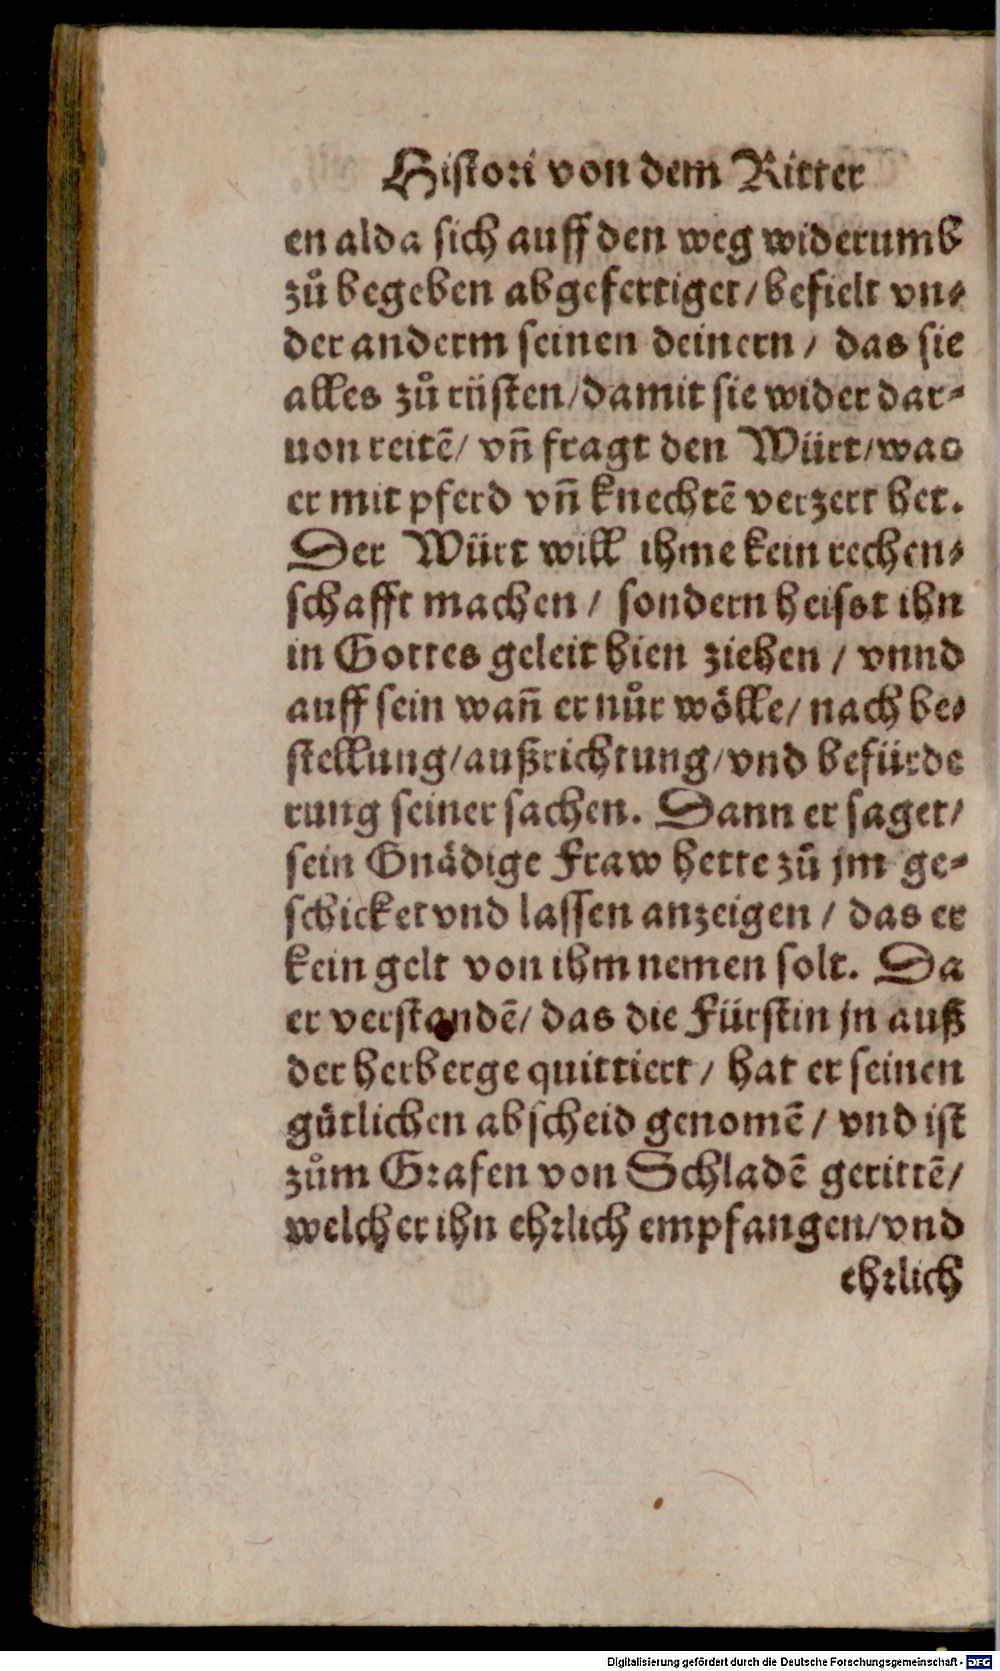 Histori von dem Ritter
en alda sich auff den weg widerumb
zů begeben abgefertiget / befielt vn⸗
der anderm seinen deinern / das sie
alles zů rüsten / damit sie wider dar⸗
uon reitẽ / vñ fragt den Würt / was
er mit pferd vñ knechtẽ verzert het.
Der Würt will ihme kein rechen⸗
schafft machen / sondern heisst ihn
in Gottes geleit hien ziehen / vnnd
auff sein wañ er nůr wölle / nach be⸗
stellung / außrichtung / vnd befürde
rung seiner sachen. Dann er saget /
sein Gnädige Fraw hette zů jm ge⸗
schicket vnd lassen anzeigen / das er
kein gelt von ihm nemen solt. Da
er verstandẽ / das die Fürstin jn auß
der herberge quittiert / hat er seinen
gütlichen abscheid genomẽ / vnd ist
zům Grafen von Schladẽ gerittẽ /
welcher ihn ehrlich empfangen / vnd
ehrlich
Digitalisierung gefördert durch die Deutsche Forschungsgemeinschaft - DFG